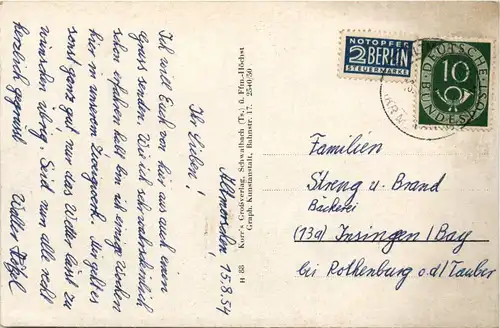 Allmenrod, 15.8.54
Ihr Lieben!
Ich will Euch von hier aus auch einen
Gruss senden. Wie ich ihr wahrscheinlich
schon erfahren habt bin ich einige Wochen
hier in unserem Zweigwerk. Mir geht es
sonst ganz gut, nur das Wetter lässt zu
wünschen übrig. Seid nun alle recht
herzlich gegrüsst
Walter
H 85
Korr's Großverlag, Schwalbach (Ts.) ü. Ffm.-Höchst
Graph. Kunstanstalt, Bahnstr. 17. 25+0/50
NOTOPFER
2 BERLIN
STEUERMARKE
DEUTSCHE
BUNDESPOST
10
Familien
Streng u. Brand
Bäckerei
(13a) Insingen/Bay
bei Rothenburg o.d/Tauber